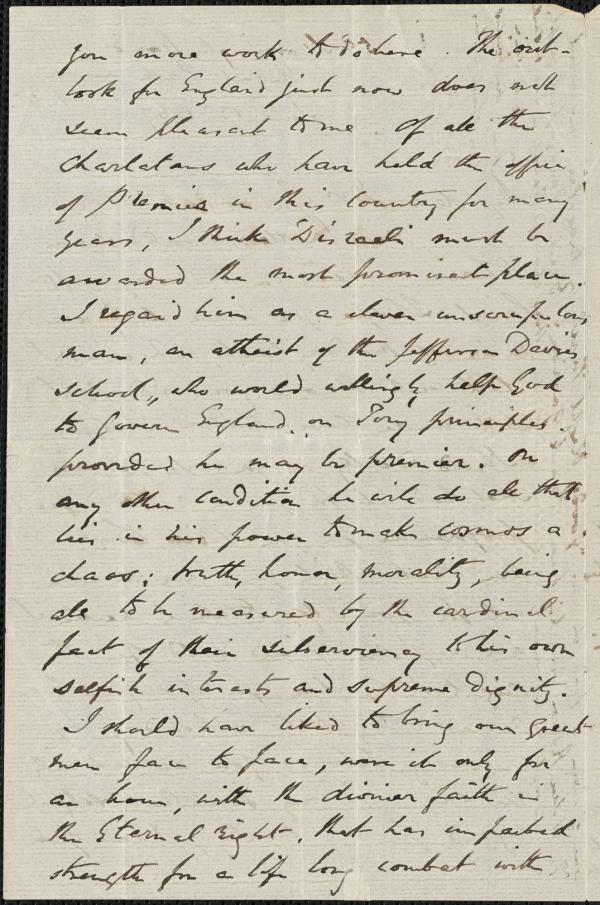 you more work to do here. The out-
look for England just now does not
seem pleasant to me. Of all the
Charlatans who have held the office
of Premier in this Country for many
years, I think Disraeli must be
awarded the most prominent place.
I regard him as a clever unscrupulous
man, an atheist of the Jefferson Davis
school, who would willingly help God
to govern England on Tory principles
provided he may be premier. On
any other condition he will do all that
lies in his power to make cosmos a
chaos; truth, honor, morality, being
all to be measured by the cardinal
fact of their subserviency to his own
selfish interests and supreme dignity.
I should have liked to bring our great
men face to face, were it only for
an hour, with the diviner faith in
the Eternal Right, that has imparted
strength for a life long combat with